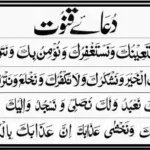 دُعائے قنوت
نَسْتَعِيْنُكَ وَنَسْتَغْفِرُكَ وَنُؤْمِنُ بِكَ وَنَتَوَ
الْخَيْرَ وَنَشْكُرُكَ وَلَا نَكْفُرُكَ وَنَخْلَعُ وَنَتْرُ
نَعْبُدُ وَلَكَ نُصَلِّيْ وَنَسْجُدُ وَاِلَيْكَ
وَنَخْشٰى عَذَابَكَ اِنَّ عَذَابَكَ بِالْكُ